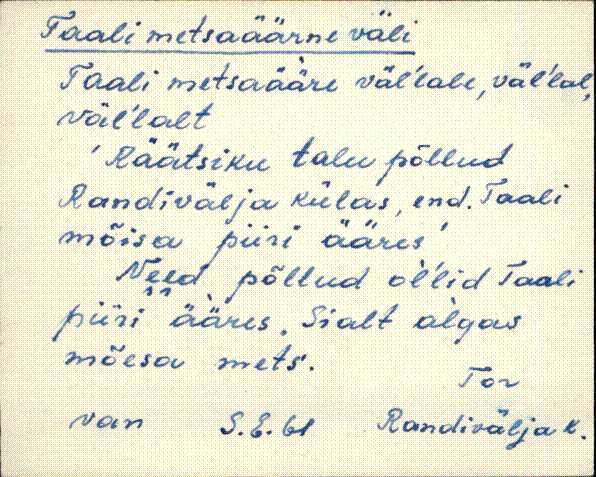 Taali metsaäärne väli
Taali metsaääre väl'lale, väl'lal,
väl'lalt
'Räätsiku talu põllud
Randivälja külas, end. Taali
mõisa piiri ääres'
Need põllud ol'lid Taali
piiri ääres. Sialt algas
mõesa mets'.
Tor
van S.E. 61 Randivälja k.